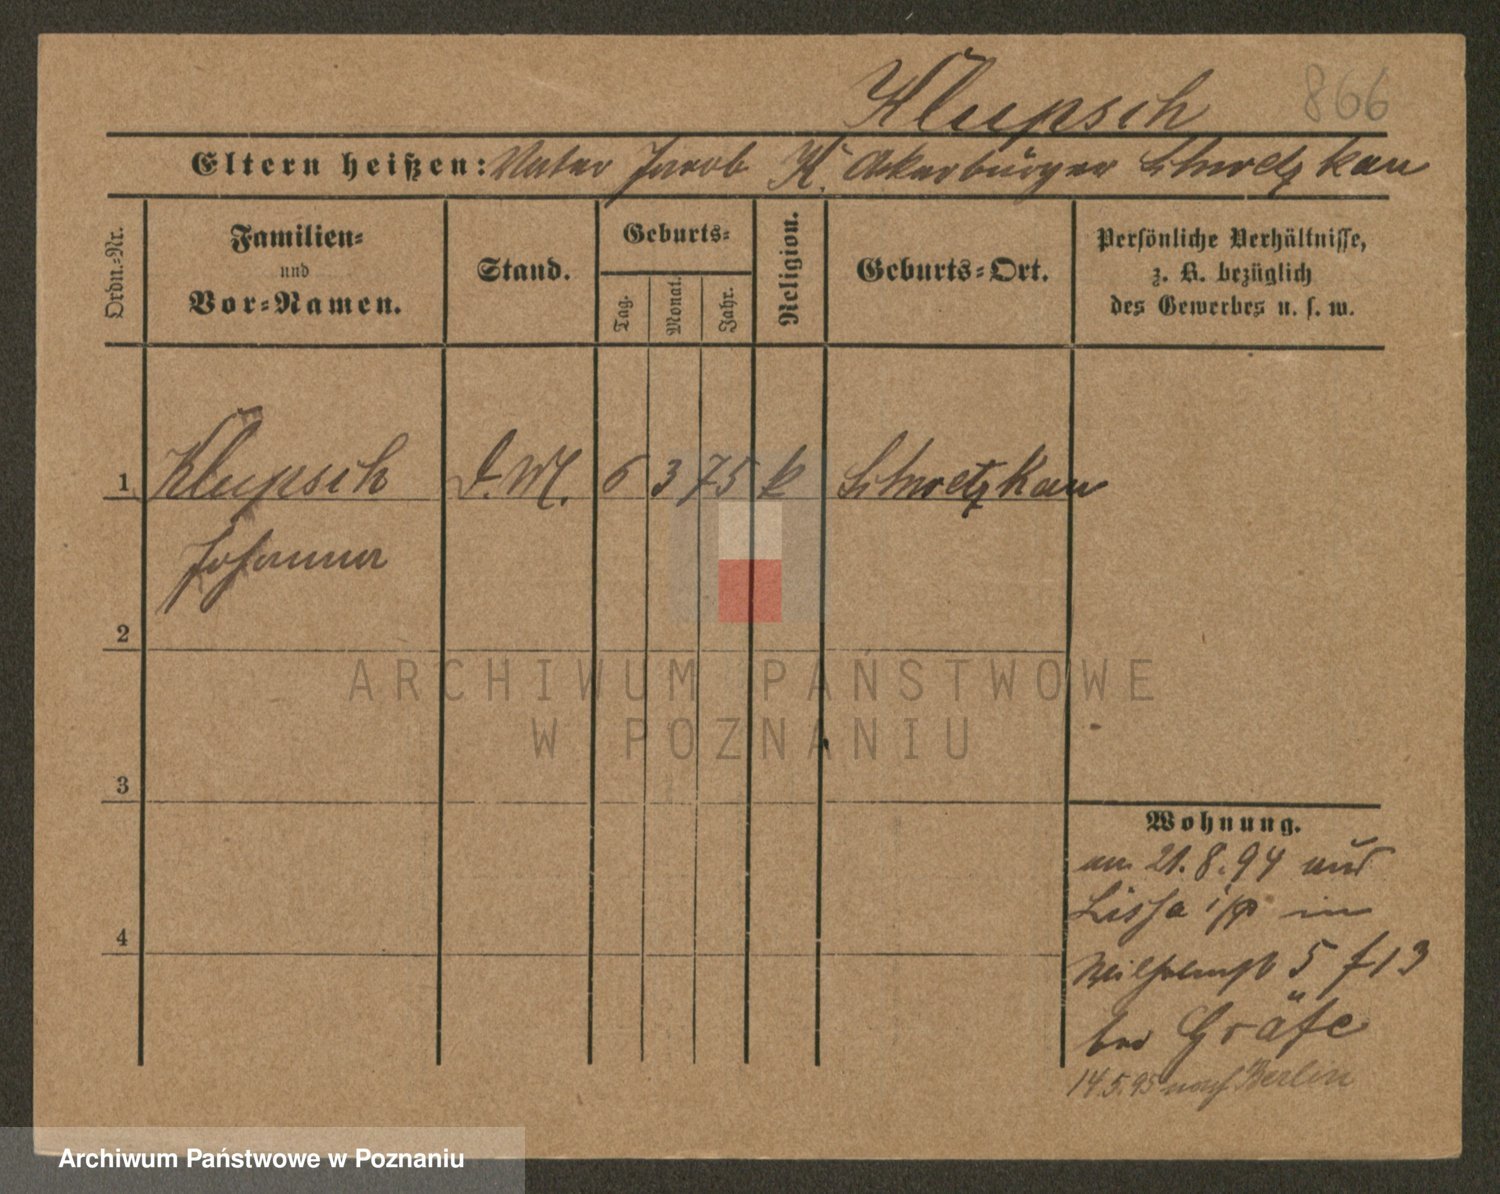 Klupsch 866
Eltern heißen: Vater Jacob K. Ackerbürger Schwetzkau
Ordn.-Nr.
Familien-
und
Vor-Namen.
Stand.
Geburts-
Tag.
Monat.
Jahr.
Religion.
Geburts-Ort.
Persönliche Verhältnisse,
z. B. bezüglich
des Gewerbes u. s. w.
1 Klupsch D. M. 6 3 75 k Schwetzkau
Johanna
2
ARCHIWUM PAŃSTWOWE
W POZNANIU
3
4
Wohnung.
am 21.8.94 aus
Lissa i/P in
Wilhelmst 5 f 13
bei Gräfe
14.5.95 nach Berlin
Archiwum Państwowe w Poznaniu